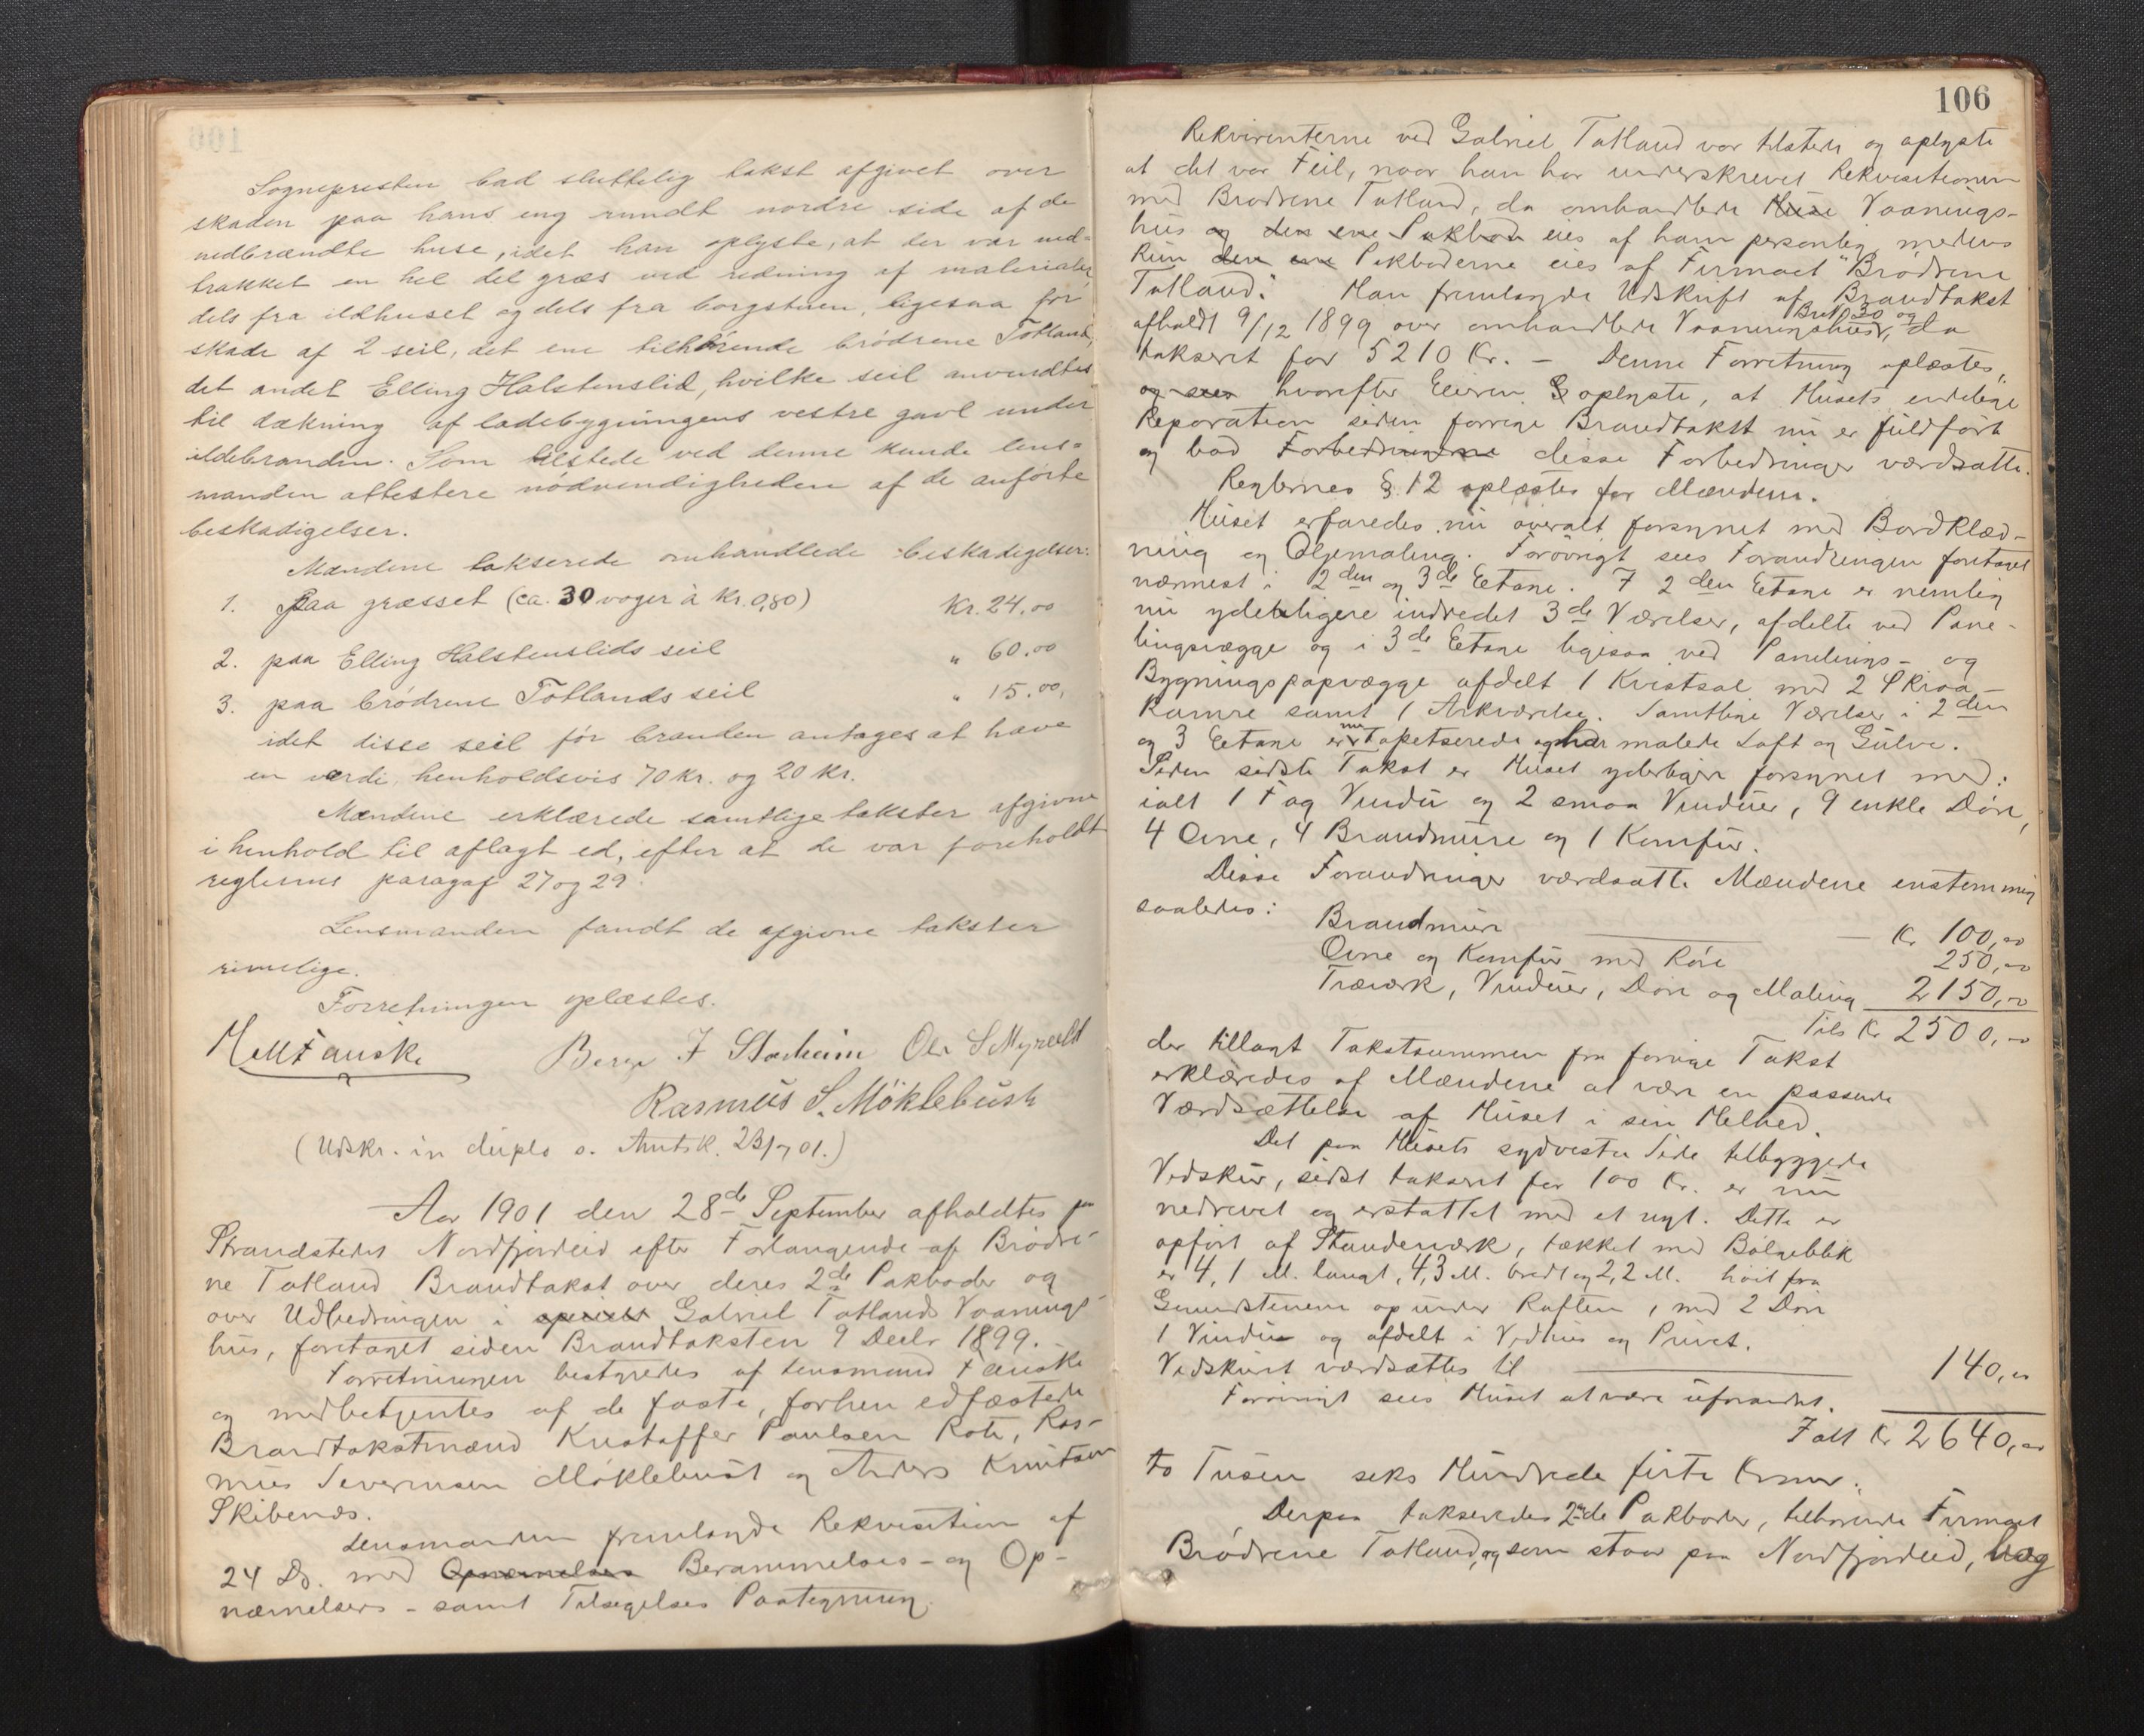 Sognepresten bad sluttelig takst afgivet over
skaden paa hans eng rundt nordre side af de
nedbrændte huse, idet han oplyste, at der var ned-
trakket en hel del græs ved redning af materialer,
dels fra ildhuset og dels fra borgstuen, ligesaa for
skade af 2 seil, det ene tilhørende brødrene Totland,
det andet Elling Halstenslid, hvilke seil anvendtes
til dækning af ladebygningens vestre gavl under
ildebranden. Som tilstede ved denne kunde lens=
manden attestere nødvendigheden af de anførte
beskadigelser.
Mændene takserede omhandlede beskadigelser:
1. Paa græsset (ca. 30 voger à kr. 0,80) Kr. 24.00
2. paa Elling Halstenslids seil " 60.00
3. paa brødrene Totlands seil " 15.00,
idet disse seil før branden antages at have
en værdi henholdsvis 70 kr. og 20 kr.
Mændene erklærede samtlige takster afgivne
i henhold til aflagt ed, efter at de var foreholdt
reglernes paragaf 27 og 29.
Lensmanden fandt de afgivne takster
rimelige.
Forretningen oplæstes.
Fauske Berge J Staheim Ole S Myrvold
Rasmus S. Möklebust
(Udskr. in duplo s. Amtsk. 23/7 01.)
Aar 1901 den 28de September afholdtes paa
Strandstedet Nordfjordeid efter Forlangende af Brødre-
ne Totland Brandtakst over deres 2de Pakboder og
over Udbedringen i Gabriel Totlands Vaanings-
hus, foretaget siden Brandtaksten 9 Decbr 1899.
Forretningen bestyredes af Lensmand Fauske
og medbetjentes af de faste, forhen edfæstede
Brandtakstmænd Kristoffer Paulsen Rote, Ras-
mus Severinsen Möklebust og Anders Knutsen
Skibenes.
Lensmanden fremlagde Rekvisition af
24 Ds. med Opnævnelses Berammelses- og Op-
nævnelses- samt Tilsigelses Paategning.
106
Rekvirenterne ved Gabriel Totland var tilstede og oplyste
at det var Feil, naar han har underskrevet Rekvisitionen
med Brødrene Totland, da omhandlede Huse Vaanings-
hus og den ene Pakbod eies af ham personlig, medens
kun den ene Pakboderne eies af Firmaet "Brødrene
Totland." Man fremlagde Udskrift af Brandtakst
Brnr 30 og
afholdt 9/12 1899 over omhandlede Vaaningshus, da
takseret for 5210 Kr. – Denne Forretning oplæstes,
og sees hvorefter Eieren oplyste, at Husets endelige
Reparation siden forrige Brandtakst nu er fuldført
og bad Forbedringerne disse Forbedringer værdsatte.
Reglernes §. 12 oplæstes for Mændene.
Huset erfaredes nu overalt forsynet med Bordklæd-
ning og Oljemaling. Forøvrigt sees Forandringen foretaget
nærmest i 2den og 3de Etage. I 2den Etage er nemlig
nu yderligere indredet 3de Værelser, afdelte ved Pane-
lingsvægge og i 3de Etage ligesaa ved Panelings- og
Bygningspapvægge afdelt 1 Kvistsal med 2 Skraa-
kamre samt 1 Arkværelse. Samtlige Værelser i 2den
og 3 Etage er nu Tapetserede og har malede Loft og Gulve.
Siden sidste Takst er Huset yderligere forsynet med:
ialt 1 Fag Vindu og 2 smaa Vinduer, 9 enkle Døre,
4 Ovne, 4 Brandmure og 1 Komfur.
Disse Forandringer værdsatte Mændene enstemmig
saaledes:
Brandmure — Kr 100,00
Ovne og Komfur med Rør 250,00
Træværk, Vinduer, Døre og Maling 2150,00
Tils Kr 2500,00
der tillagt Takstsummen fra forrige Takst
erklæredes af Mændene at være en passende
Værdsættelse af Huset i sin Helhed.
Det paa Husets sydvestre Side tilbyggede
Vedskur, sidst takseret for 100 Kr. er nu
nedrevet og erstattet med et nyt. Dette er
opført af Standerværk, tækket med Bølgeblik
er 4,1 M. langt, 4,3 M. bredt og 2,2 M. høit fra
Grundstenene op under Raften, med 2 Døre
1 Vindu og afdelt i Vedhus og Privet.
Vedskuret værdsættes til — 140,00
Forøvrigt sees Huset at være uforandret.
Ialt Kr 2640,00
to Tusen seks Hundrede firti Kroner.
Derpaa takseredes 2de Pakboder, tilhørende Firmaet
Brødrene Totland, og som staar paa Nordfjordeid,